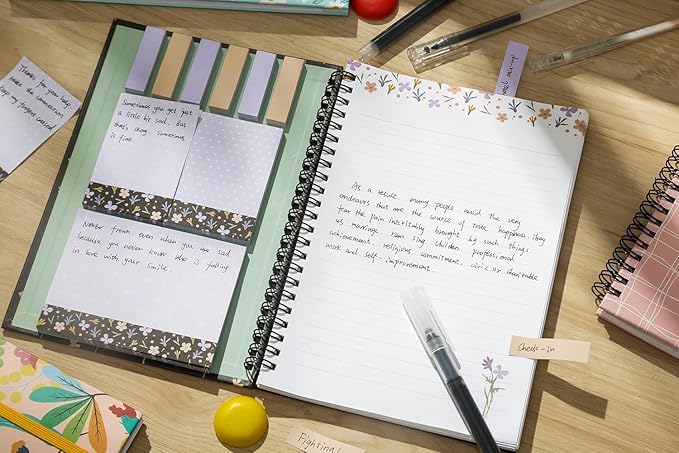 Thanks for your help
make the connection
keep my tongue
Sometimes you get just
a little bit sad, but
that's okay. Sometimes
is fine.
Never frown, even when you are sad
because you never know who is falling
in love with your smile.
As a result, many people avoid the very
endeavors that are the source of true happiness. They
fear the pain inevitably brought by such things
as marriage, raising children, professional
achievement, religious commitment, civic or charitable
work and self-improvement.
mix-up
Check-in
Fighting!